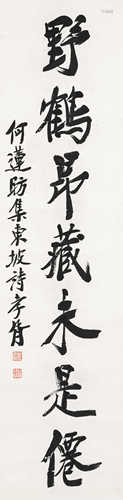 野鶴昂藏未是僊
何蓮昉集東坡詩孝胥